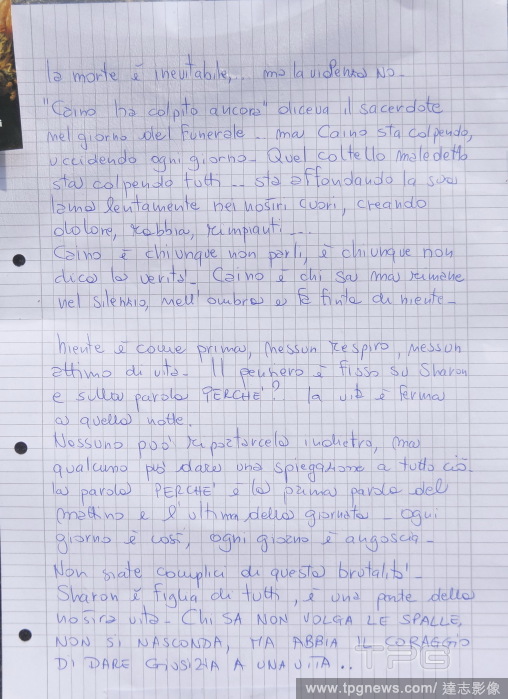 la morte è inevitabile,... ma la violenza no.
"Caino ha colpito ancora" diceva il sacerdote
nel giorno del funerale.. ma Caino sta colpendo,
uccidendo ogni giorno. Quel coltello maledetto
sta colpendo tutti... sta affondando la sua
lama lentamente nei nostri cuori, creando
dolore, rabbia, rimpianti....
Caino è chiunque non parli, è chiunque non
dica la verità. Caino è chi sa ma rimane
nel silenzio, nell'ombra e fa finta di niente.
niente è come prima, nessun respiro, nessun
attimo di vita. Il pensiero è fisso su Sharon
e sulla parola PERCHÈ? la vita è ferma
a quella notte.
Nessuno può riportarcela indietro, ma
qualcuno può dare una spiegazione a tutto ciò.
la parola PERCHÈ è la prima parola del
mattino e l'ultima della giornata. Ogni
giorno è così, ogni giorno è angoscia.
Non siate complici di questa brutalità.
Sharon è figlia di tutti, è una parte della
nostra vita. Chi SA NON VOLGA LE SPALLE,
NON SI NASCONDA, MA ABBIA IL CORAGGIO
DI DARE GIUSTIZIA A UNA VITA..
TPG
www.tpgnews.com/ 達志影像